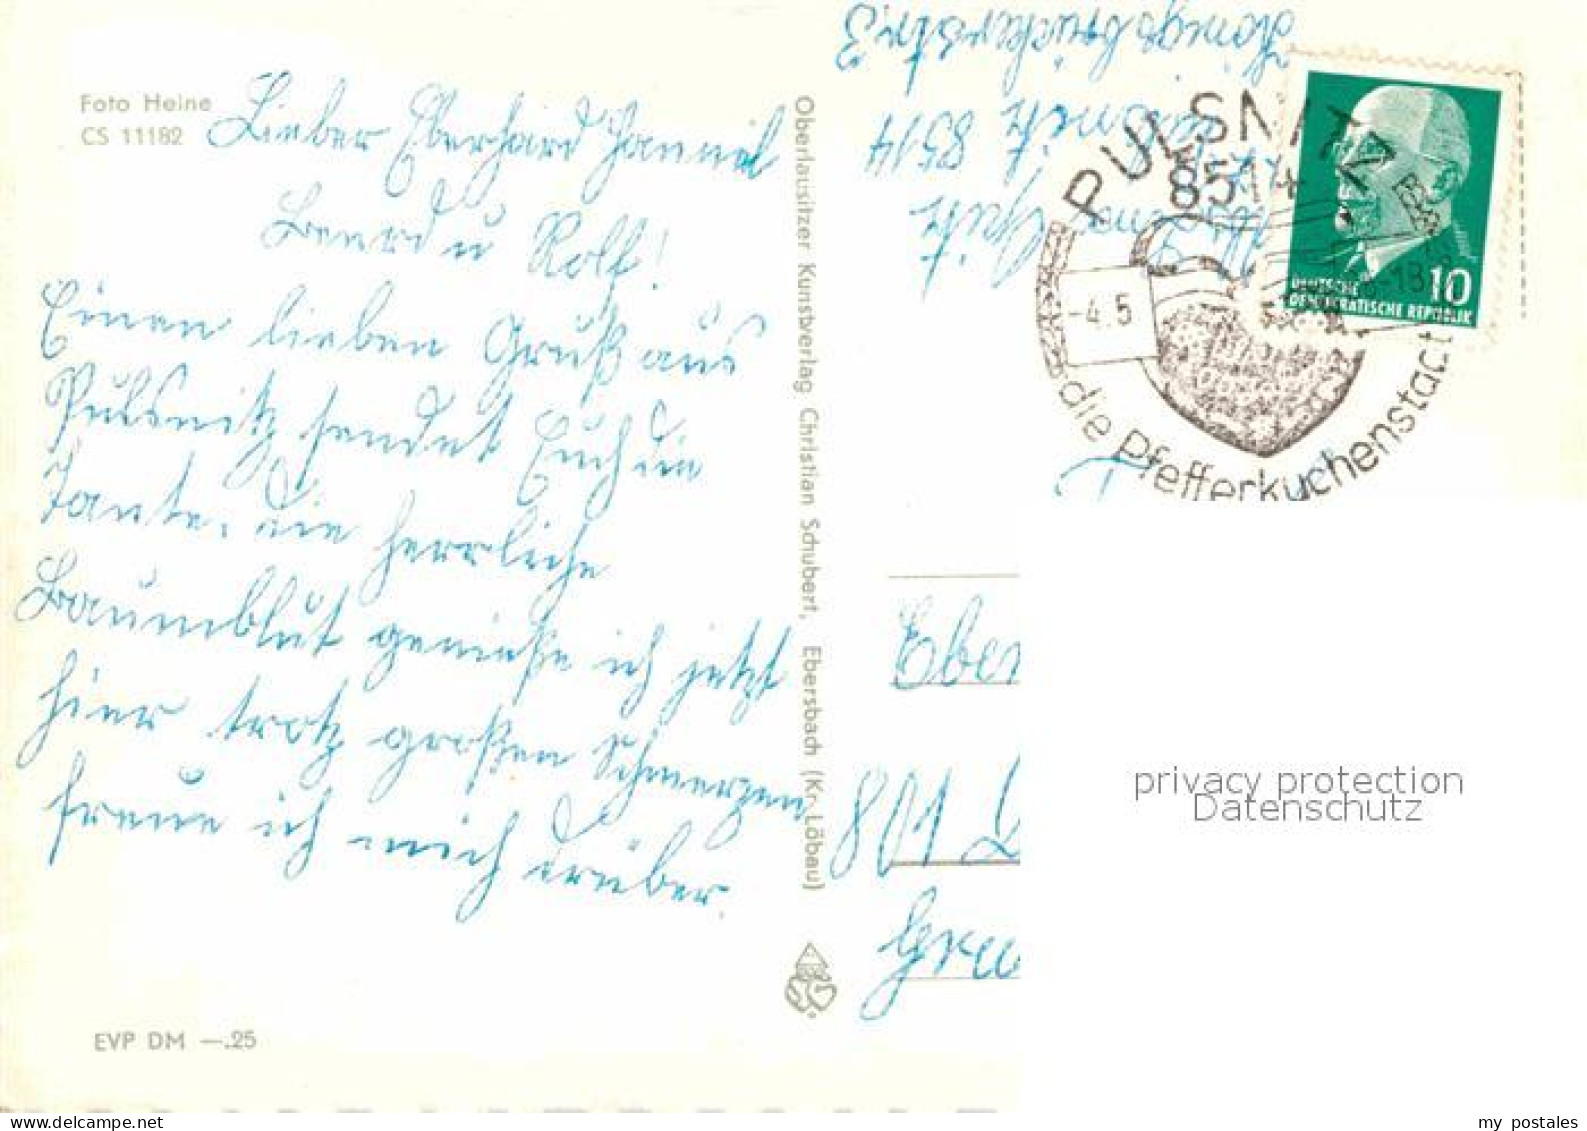 Foto Heine
CS 11182
Lieber Eberhard Hannel
Beerd u Rolf!
Einen lieben Gruß aus
Pulsnitz sendet Euch die
Tante. Die herrliche
Baumblut genieße ich jetzt
hier trotz großen Schmerzen
freue ich mich drüber.
EVP DM —.25
Oberlausitzer Kunstverlag Christian Schubert, Ebersbach (Kr. Löbau)
Königsbrückerstr 3
8514
PULSNITZ
8514
-4.5
-18
die Pfefferkuchenstadt
DEUTSCHE
DEMOKRATISCHE REPUBLIK
10
Eber
801 D
privacy protection
Datenschutz
my postales